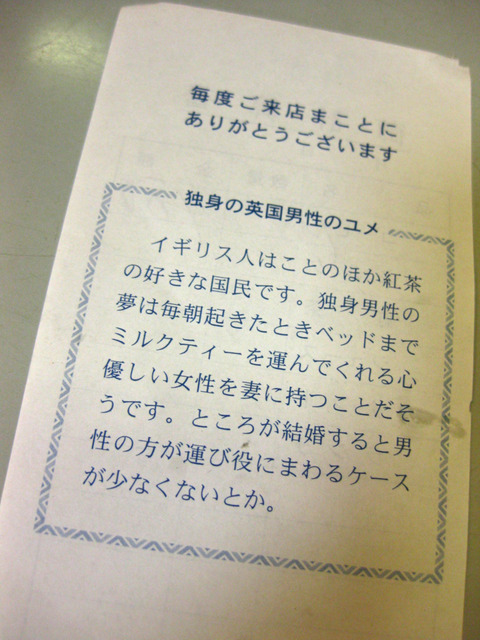 毎度ご来店まことに
ありがとうございます
独身の英国男性のユメ
イギリス人はことのほか紅茶
の好きな国民です。独身男性の
夢は毎朝起きたときベッドまで
ミルクティーを運んでくれる心
優しい女性を妻に持つことだそ
うです。ところが結婚すると男
性の方が運び役にまわるケース
が少なくないとか。